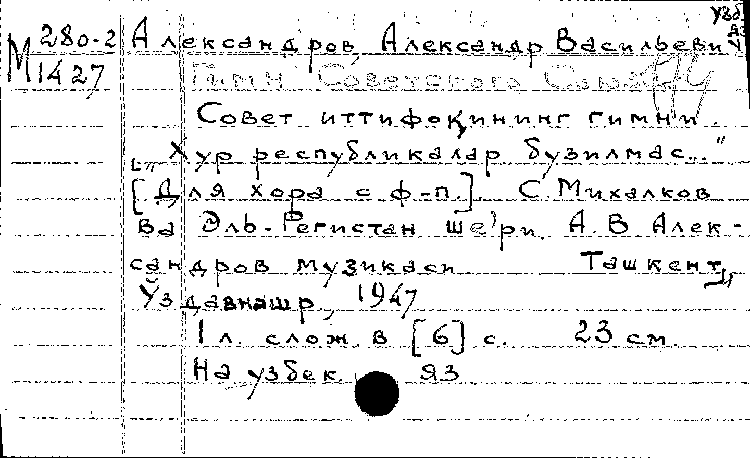 Узб.
яз
М 280-2
1427
Александров, Александр Васильевич
Гимн Советского Союза
Совет иттифоқининг гимни.
["Хур республикалар бузилмас..."
[Для хора с ф-п.]. С. Михалков
ва Эль-Регистан ше'ри. А. В. Алек-
сандров музикаси. Ташкент,
Ўздавнашр, 1947
1 л. слож. в [6] с. 23 см.
На узбек. яз.